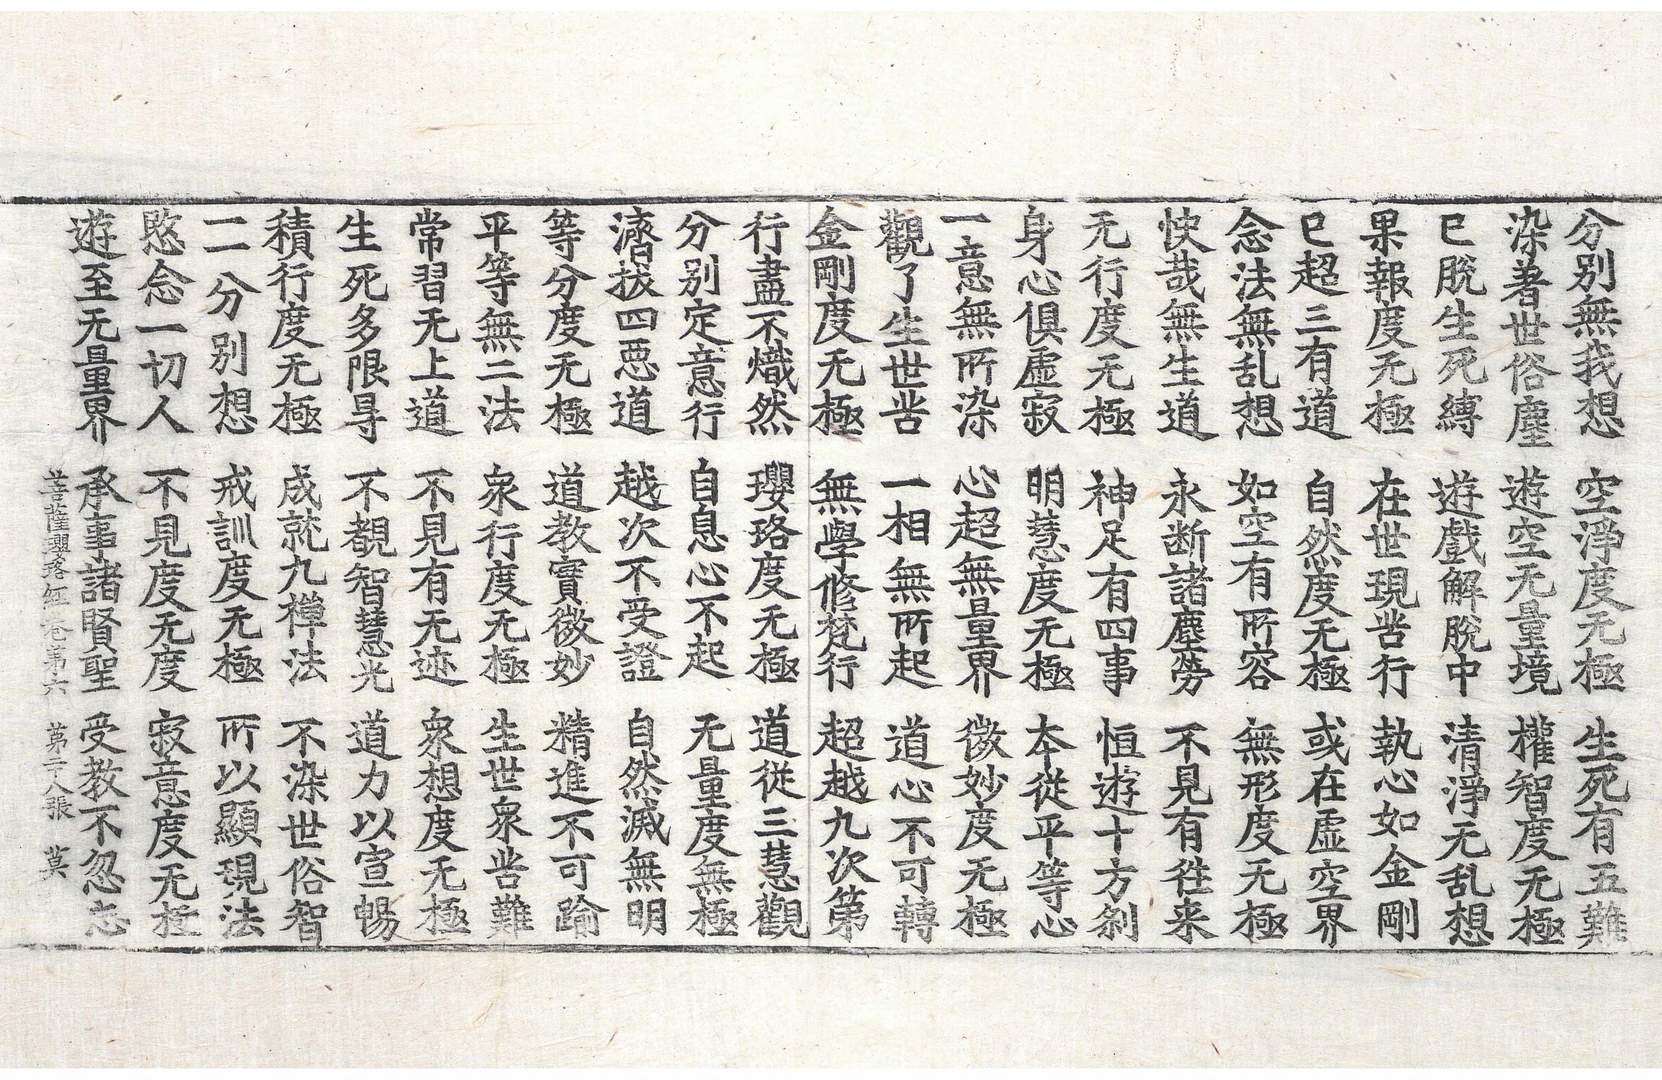 分别無我想 空淨度无極 生死有五難
染著世俗塵 遊空无量境 權智度无極
已脫生死縛 遊戲解脫中 清淨无乱想
果報度无極 在世現苦行 執心如金剛
已超三有道 自然度无極 或在虛空界
念法無乱想 如空有所容 無形度无極
快哉無生道 永断諸塵勞 不見有往来
无行度无極 神足有四事 恒遊十方刹
身心俱虛寂 明慧度无極 本從平等心
一意無所染 心超無量界 微妙度无極
觀了生世苦 一相無所起 道心不可轉
金剛度无極 無學修梵行 超越九次第
行盡不熾然 瓔珞度无極 道從三慧觀
分别定意行 自息心不起 无量度無極
濟拔四惡道 越次不受證 自然滅無明
等分度无極 道教實微妙 精進不可踰
平等無二法 衆行度无極 生世衆苦難
常習无上道 不見有无迹 衆想度无極
生死多限㝵 不覩智慧光 道力以宣暢
積行度无極 成就九禪法 不染世俗智
二分别想 戒訓度无極 所以顯現法
愍念一切人 不見度无度 寂意度无極
遊至无量界 承事諸賢聖 受教不忽忘
菩薩瓔珞経卷第六 第二十八張 莫